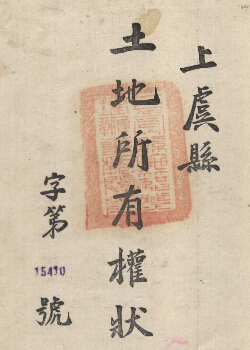 上虞縣
土地所有權狀
字第15410號